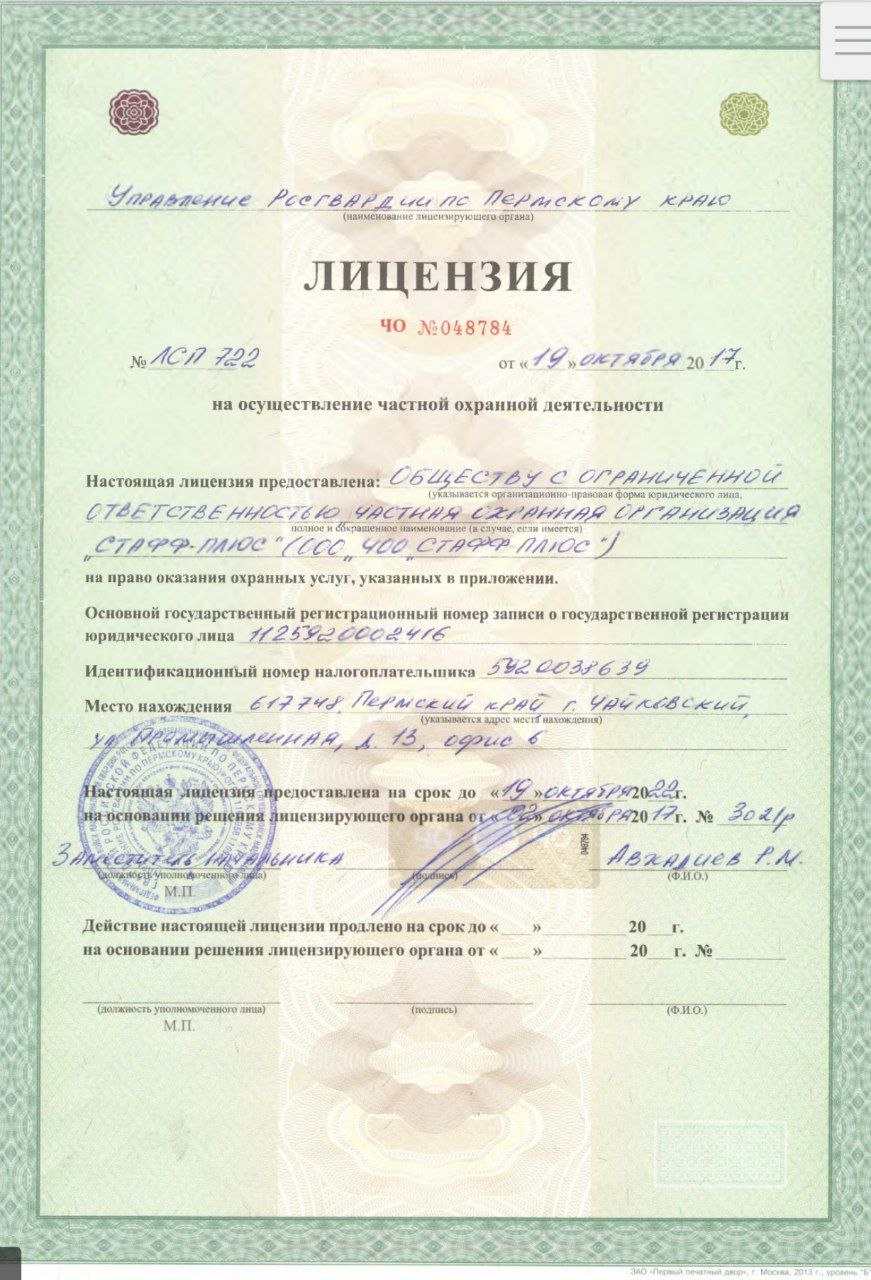 Управление Росгвардии по Пермскому краю
(наименование лицензирующего органа)
ЛИЦЕНЗИЯ
ЧО №048784
№ ЛСП 722 от «19» октября 2017г.
на осуществление частной охранной деятельности
Настоящая лицензия предоставлена: ОБЩЕСТВУ С ОГРАНИЧЕННОЙ
(указывается организационно-правовая форма юридического лица,
ОТВЕТСТВЕННОСТЬЮ ЧАСТНАЯ ОХРАННАЯ ОРГАНИЗАЦИЯ
полное и сокращенное наименование (в случае, если имеется)
„СТАФФ-ПЛЮС" (ООО „ЧОО „СТАФФ-ПЛЮС")
на право оказания охранных услуг, указанных в приложении.
Основной государственный регистрационный номер записи о государственной регистрации
юридического лица 1125920002416
Идентификационный номер налогоплательщика 5920038639
Место нахождения 617748, Пермский край г. Чайковский,
(указывается адрес места нахождения)
ул. Промышленная, д. 13, офис 6
Настоящая лицензия предоставлена на срок до «19» октября 2022г.
на основании решения лицензирующего органа от «02» октября 2017г. № 3021р
Заместитель начальника Авхадиев Р.М.
(должность уполномоченного лица) (подпись) (Ф.И.О.)
М.П.
048784
Действие настоящей лицензии продлено на срок до « » 20 г.
на основании решения лицензирующего органа от « » 20 г. №
(должность уполномоченного лица) (подпись) (Ф.И.О.)
М.П.
ЗАО «Первый печатный двор», г. Москва, 2013 г., уровень "Б"